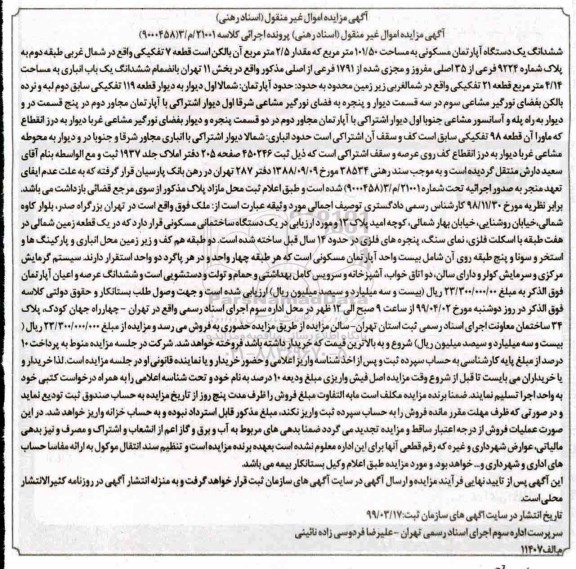 آگهی مزایده اموال غیر منقول (اسناد رهنی)
آگهی مزایده اموال غیر منقول (اسناد رهنی) پرونده اجرائی کلاسه ۲۱۰۰۱/م/۳(۹۰۰۰۴۵۸)
ششدانگ یک دستگاه آپارتمان مسکونی به مساحت ۱۰۱/۵۰ متر مربع که مقدار ۲/۵ متر مربع آن بالکن است قطعه ۷ تفکیکی واقع در شمال غربی طبقه دوم به
پلاک شماره ۹۲۲۴ فرعی از ۳۵ اصلی مفروز و مجزی شده از ۱۷۹۱ فرعی از اصلی مذکور واقع در بخش ۱۱ تهران بانضمام ششدانگ یک باب انباری به مساحت
۴/۱۴ متر مربع قطعه ۲۱ تفکیکی واقع در شمالغربی زیر زمین محدود به حدود: حدود آپارتمان: شمالا اول دیوار به دیوار قطعه ۱۱۹ تفکیکی سابق دوم لبه و نرده
بالکن بفضای نورگیر مشاعی سوم در سه قسمت دیوار و پنجره به فضای نورگیر مشاعی شرقا اول دیوار اشتراکی با آپارتمان مجاور دوم در پنج قسمت در و
دیوار به راه پله و آسانسور مشاعی جنوبا اول دیوار اشتراکی با آپارتمان مجاور دوم در دو قسمت پنجره و دیوار بفضای نورگیر مشاعی غربا دیوار به درز انقطاع
که ماورا آن قطعه ۹۸ تفکیکی سابق است کف و سقف آن اشتراکی است حدود انباری: شمالا دیوار اشتراکی با انباری مجاور شرقا و جنوبا در و دیوار به محوطه
مشاعی غربا دیوار به درز انقطاع کف روی عرصه و سقف اشتراکی است که ذیل ثبت ۴۵۰۲۴۶ صفحه ۲۰۵ دفتر املاک جلد ۱۹۳۷ ثبت و مع الواسطه بنام آقای
سعید دارش منتقل گردیده است و به موجب سند رهنی ۳۸۵۳۴ مورخ ۱۳۸۸/۰۹/۰۹ دفتر ۲۸۷ تهران در رهن بانک پارسیان قرار گرفته که به علت عدم ایفای
تعهد منجر به صدور اجرائیه تحت شماره ۲۱۰۰۱/م/۳(۹۰۰۰۴۵۸) شده است و طبق اعلام ثبت محل مازاد پلاک مذکور از سوی مرجع قضائی بازداشت می باشد.
برابر نظریه مورخ ۹۸/۱۱/۳۰ کارشناس رسمی دادگستری توصیف اجمالی مورد وثیقه عبارت است از: ملک فوق واقع است در تهران بزرگراه صدر، بلوار کاوه
شمالی، خیابان روشنایی، خیابان بهار شمالی، کوچه امید پلاک ۱۲ مورد ارزیابی در یک دستگاه ساختمانی مسکونی قرار دارد که در یک قطعه زمین شمالی در
هفت طبقه با اسکلت فلزی، نمای سنگ، پنجره های فلزی در حدود ۱۴ سال قبل ساخته شده است. دو طبقه هم کف و زیر زمین محل انباری و پارکینگ ها و
استخر و سونا و پنج طبقه روی آن شامل بیست واحد آپارتمان مسکونی است که هر طبقه چهار واحد و در هر پاگرد دو واحد استقرار دارند. سیستم گرمایش
مرکزی و سرمایش کولر و دارای سالن، دو اتاق خواب، آشپزخانه و سرویس کامل بهداشتی و حمام و توالت و دستشویی است و ششدانگ عرصه و اعیان آپارتمان
فوق الذکر به مبلغ ۲۳/۳۰۰/۰۰۰/۰۰۰ ریال (بیست و سه میلیارد و سیصد میلیون ریال) ارزیابی شده است و جهت وصول طلب بستانکار و حقوق دولتی کلاسه
فوق الذکر در روز دوشنبه مورخ ۹۹/۰۴/۰۲ از ساعت ۹ صبح الی ۱۲ ظهر در محل اداره سوم اجرای اسناد رسمی واقع در تهران - چهارراه جهان کودک، پلاک
۳۴ ساختمان معاونت اجرای اسناد رسمی ثبت استان تهران-سالن مزایده از طریق مزایده حضوری به فروش می رسد و مزایده از مبلغ ۲۳/۳۰۰/۰۰۰/۰۰۰ ریال (
بیست و سه میلیارد و سیصد میلیون ریال) شروع و به بالاترین قیمت که خریدار داشته باشد فروخته خواهد شد. شرکت در جلسه مزایده منوط به پرداخت ۱۰
درصد از مبلغ پایه کارشناسی به حساب سپرده ثبت و پس از اخذ شناسه واریز اعلامی و حضور خریدار و یا نماینده قانونی او در جلسه مزایده است. لذا خریدار و
یا خریداران می بایست تا قبل از شروع وقت مزایده اصل فیش واریزی مبلغ ودیعه ۱۰ درصد به نام خود و تحت شناسه اعلامی را به همراه درخواست کتبی خود
به واحد اجرا تسلیم نمایند. ضمنا برنده مزایده مکلف است مابه التفاوت مبلغ فروش را ظرف مدت پنج روز از تاریخ مزایده به حساب صندوق ثبت تودیع نماید
و در صورتی که ظرف مهلت مقرر مانده فروش را به حساب سپرده ثبت واریز نکند، مبلغ مذکور قابل استرداد نبوده و به حساب خزانه واریز خواهد شد. در این
صورت عملیات فروش از درجه اعتبار ساقط و مزایده تجدید می گردد ضمنا بدهی های مربوط به آب و برق و گاز اعم از انشعاب و اشتراک و مصرف و نیز بدهی
مالیاتی، عوارض شهرداری و غیره که رقم قطعی آنها برای این اداره معلوم نشده است بعهده برنده مزایده است و تنظیم سند انتقال موکول به ارائه مفاصا حساب
های اداری و شهرداری و... خواهد بود. و مورد مزایده طبق اعلام وکیل بستانکار بیمه می باشد.
این آگهی پس از تایید نهایی فرآیند مزایده و ارسال آگهی در سایت آگهی های سازمان ثبت قرار خواهد گرفت و به منزله انتشار آگهی در روزنامه کثیرالانتشار
محلی است.
تاریخ انتشار در سایت آگهی های سازمان ثبت: ۹۹/۰۳/۱۷
سرپرست اداره سوم اجرای اسناد رسمی تهران -علیرضا فردوسی زاده نائینی
م الف ۱۱۴۰۷